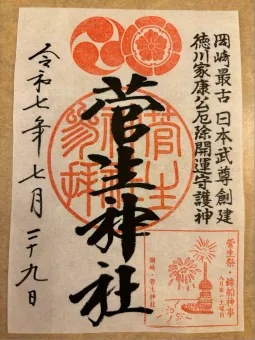 岡崎最古 日本武尊創建
徳川家康公厄除開運守護神
菅生神社
令和七年七月二十九日
菅生祭・鉾船神事
八月第一土曜日
岡崎・菅生神社